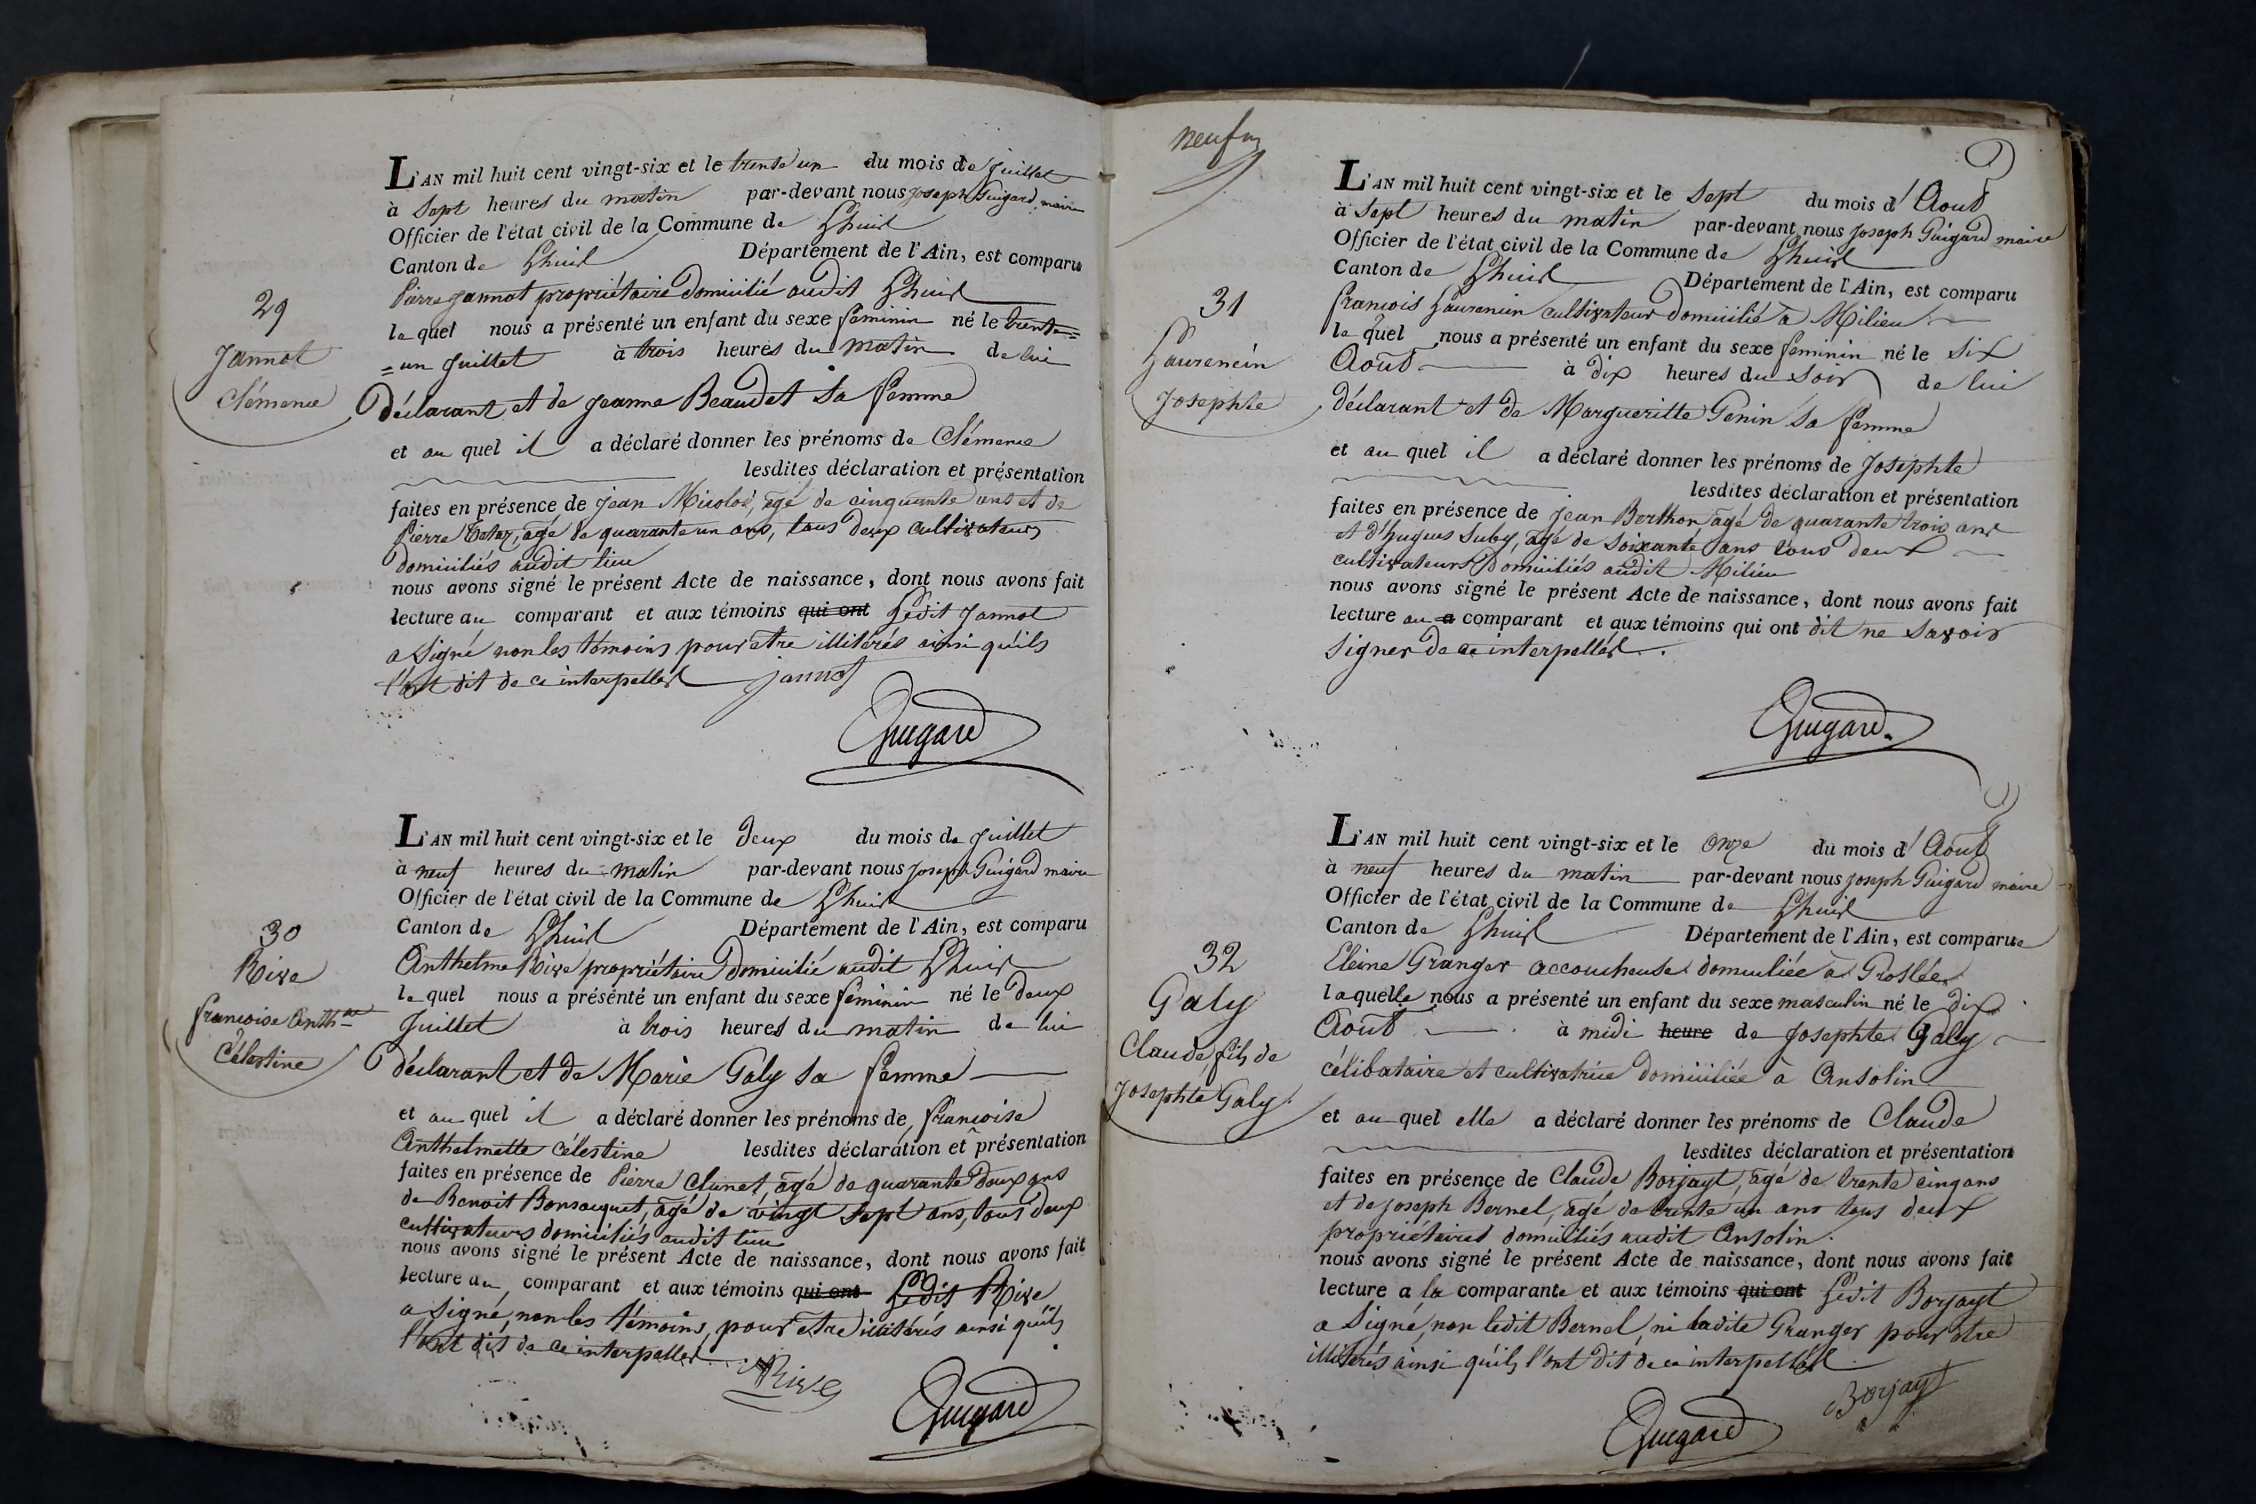 L'AN mil huit cent vingt-six et le trente un du mois de Juillet
à Sept heures du matin par-devant nous Joseph Guigard maire
Officier de l'état civil de la Commune de Lhuis
Canton de Lhuis Département de l'Ain, est comparu
Pierre Jannot propriétaire domicilié audit Lhuis
le quel nous a présenté un enfant du sexe feminin né le trente=
29
=un Juillet à trois heures du matin de lui
Jannot
Clémence
déclarant et de Jeanne Beaudet sa femme
et au quel il a déclaré donner les prénoms de Clémence
lesdites déclaration et présentation
faites en présence de Jean Micolod, agé de cinquante ans et de
Pierre agé de quarante un ans, tous deux cultivateurs
domiciliés audit lieu
nous avons signé le présent Acte de naissance, dont nous avons fait
lecture au comparant et aux témoins qui ont Ledit Jannot
a signé non les témoins pour etre illitérés ainsi qu'ils
l'ont dit de ce interpellés Jannot
Guigard
L'AN mil huit cent vingt-six et le deux du mois de Juillet
à neuf heures du matin par-devant nous Joseph Guigard maire
Officier de l'état civil de la Commune de Lhuis
Canton de Lhuis Département de l'Ain, est comparu
30
Rive
françoise Anth.me
Célestine
Anthelme Rive propriétaire domicilié audit Lhuis
le quel nous a présenté un enfant du sexe féminin né le deux
Juillet à trois heures du matin de lui
déclarant et de Marie Galy sa femme
et au quel il a déclaré donner les prénoms de françoise
Anthelmette Célestine lesdites déclaration et présentation
faites en présence de Pierre Clunet, agé de quarante deux ans
de Benoit agé de vingt sept ans, tous deux
cultivateurs domiciliés audit lieu
nous avons signé le présent Acte de naissance, dont nous avons fait
lecture au comparant et aux témoins qui ont Ledit Rive
a signé, non les témoins, pour etre illitérés ainsi qu'ils
l'ont dit de ce interpellés. Rive
Guigard
neuf
L'AN mil huit cent vingt-six et le Sept du mois d'Aout
à Sept heures du matin par-devant nous Joseph Guigard maire
Officier de l'état civil de la Commune de Lhuis
Canton de Lhuis Département de l'Ain, est comparu
31
Laurencin
Josephte
françois Laurencin cultivateur domicilié à Milieu
le quel nous a présenté un enfant du sexe feminin né le six
Août à dix heures du soir de lui
déclarant et de Margueritte Genin sa femme
et au quel il a déclaré donner les prénoms de Josephte
lesdites déclaration et présentation
faites en présence de Jean Berthon, agé de quarante trois ans
et d'hugues Suby, agé de soixante ans tous deux
cultivateurs domiciliés audit Milieu
nous avons signé le présent Acte de naissance, dont nous avons fait
lecture au a comparant et aux témoins qui ont dit ne savoir
signer de ce interpellés.
Guigard
L'AN mil huit cent vingt-six et le onze du mois d'Aout
à neuf heures du matin par-devant nous Joseph Guigard maire
Officier de l'état civil de la Commune de Lhuis
Canton de Lhuis Département de l'Ain, est comparue
32
Galy
Claude fils de
Josephte Galy.
Eleine Granger accoucheuse domiciliée à Groslée
laquelle nous a présenté un enfant du sexe masculin né le dix
Août à midi heure de Josephte Galy
célibataire et cultivatrice domiciliée à Ansolin
et au quel elle a déclaré donner les prénoms de Claude
lesdites déclaration et présentation
faites en présence de Claude Borjayt, agé de trente cinq ans
et de Joseph Bernel, agé de trente un ans tous deux
propriétaires domiciliés audit Ansolin.
nous avons signé le présent Acte de naissance, dont nous avons fait
lecture a la comparante et aux témoins qui ont Ledit Borjayt
a signé, non ledit Bernel, ni ladite Granger pour etre
illitérés ainsi qu'ils l'ont dit de ce interpellés
Borjayt
Guigard